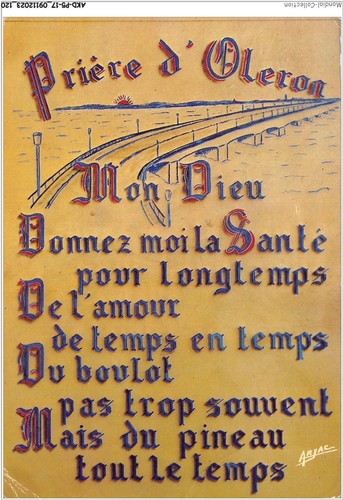 Mondial-Collection
AKD-P5-17_09112023_120
Prière d'Oleron
Mon Dieu
Donnez moi la Santé
pour longtemps
De l'amour
de temps en temps
Du boulot
pas trop souvent
Mais du pineau
tout le temps
ARJAC